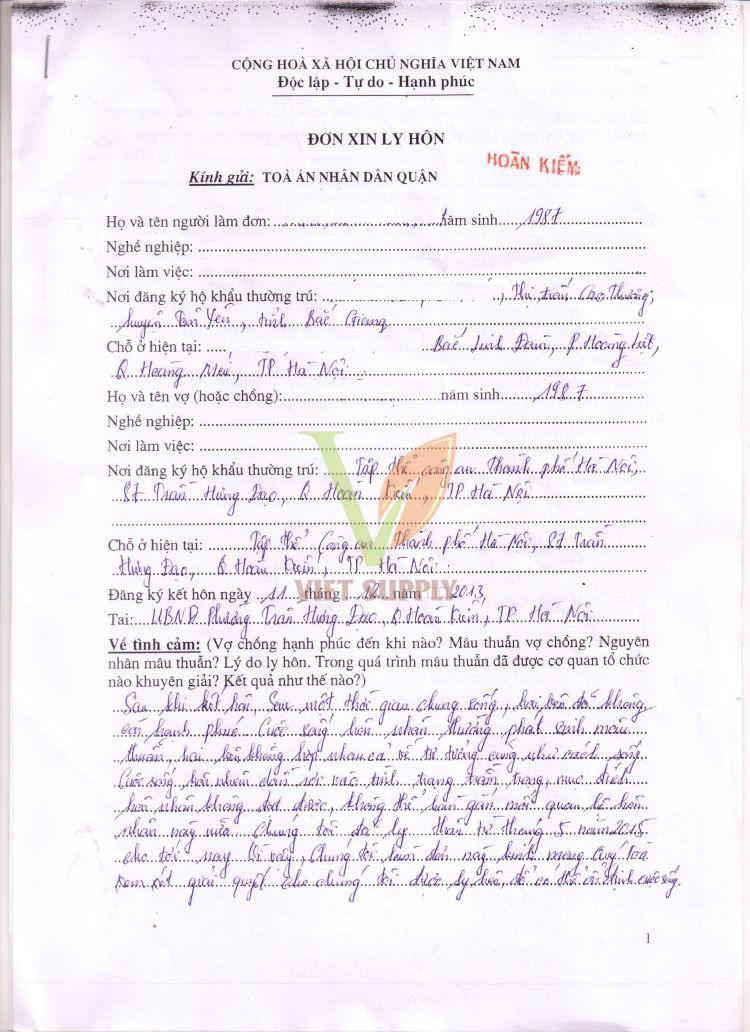 CỘNG HOÀ XÃ HỘI CHỦ NGHĨA VIỆT NAM
Độc lập - Tự do - Hạnh phúc
ĐƠN XIN LY HÔN
Kính gửi: TOÀ ÁN NHÂN DÂN QUẬN HOÀN KIẾM
Họ và tên người làm đơn: năm sinh 1987
Nghề nghiệp:
Nơi làm việc:
Nơi đăng ký hộ khẩu thường trú: , Thị trấn Cao Thượng,
huyện Tân Yên, tỉnh Bắc Giang
Chỗ ở hiện tại: Bắc Linh Đàm, P. Hoàng Liệt,
Q. Hoàng Mai, TP. Hà Nội
Họ và tên vợ (hoặc chồng): năm sinh 1987
Nghề nghiệp:
Nơi làm việc:
Nơi đăng ký hộ khẩu thường trú: Tập thể công an Thành phố Hà Nội,
Trần Hưng Đạo, Q Hoàn Kiếm, TP. Hà Nội
Chỗ ở hiện tại: Tập thể Công an Thành phố Hà Nội, Trần
Hưng Đạo, Q. Hoàn Kiếm, TP Hà Nội
Đăng ký kết hôn ngày 11 tháng 12 năm 2013,
Tại: UBND Phường Trần Hưng Đạo, Q Hoàn Kiếm, TP. Hà Nội
Về tình cảm: (Vợ chồng hạnh phúc đến khi nào? Mâu thuẫn vợ chồng? Nguyên
nhân mâu thuẫn? Lý do ly hôn. Trong quá trình mâu thuẫn đã được cơ quan tổ chức
nào khuyên giải? Kết quả như thế nào?)
Sau khi kết hôn, Sau một thời gian chung sống, hai bên đã không
còn hạnh phúc Cuộc sống hôn nhân thường phát sinh mâu
thuẫn, hai bên không hợp nhau cả về tư tưởng cũng như cách sống
Cuộc sống hôn nhân dần rơi vào tình trạng trầm trọng, mục đích
hôn nhân không đạt được, không thể hàn gắn mối quan hệ hôn
nhân này nữa Chúng tôi đã ly thân từ tháng 5 năm 2015
cho tới nay Vì vậy, Chúng tôi làm đơn này kính mong Quý toà
xem xét giải quyết cho chúng tôi được ly hôn, để có thể ổn định cuộc sống.
VIET SUPPLY
1